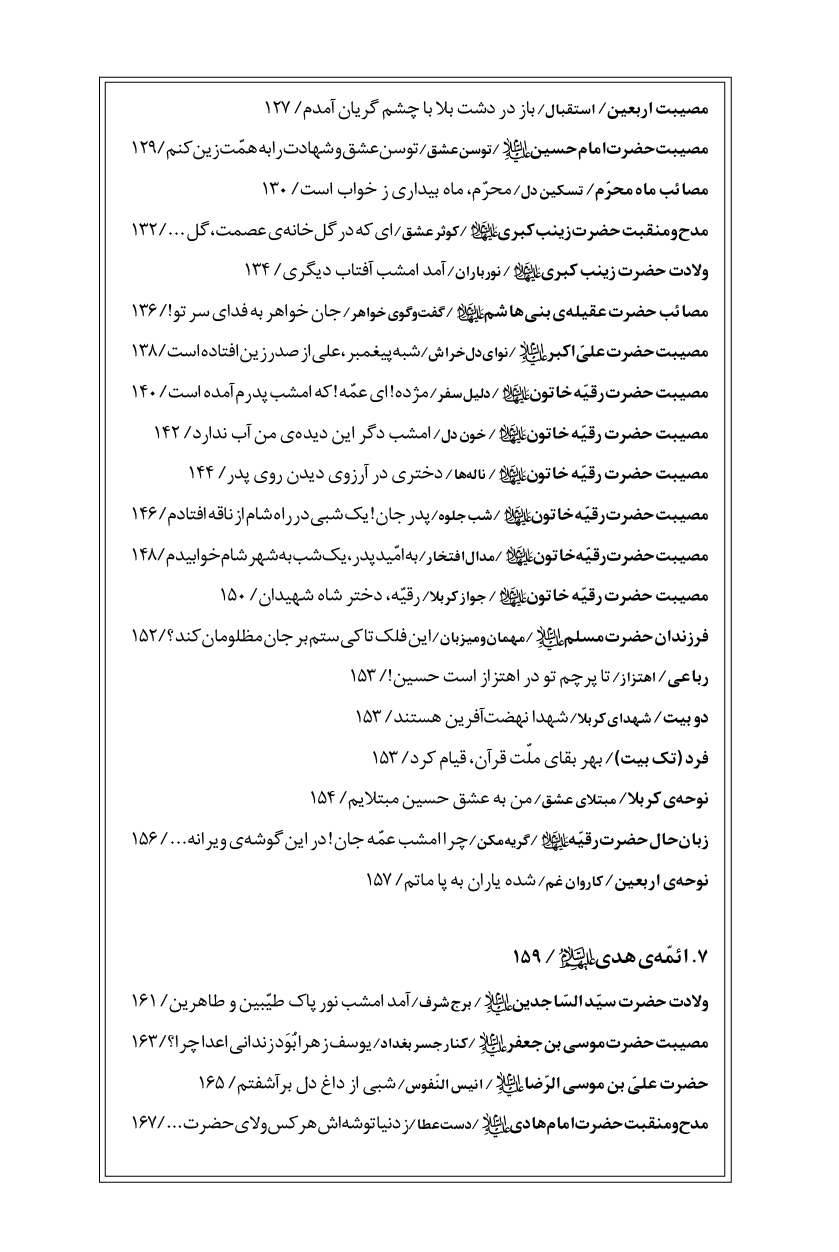 مصیبت اربعین/ استقبال/ باز در دشت بلا با چشم گریان آمدم/ ۱۲۷
مصیبت حضرت امام حسین علیه‌السلام/ توسن عشق/ توسن عشق و شهادت را به همّت زین کنم/ ۱۲۹
مصائب ماه محرّم/ تسکین دل/ محرّم، ماه بیداری ز خواب است/ ۱۳۰
مدح و منقبت حضرت زینب کبری علیهاالسلام/ کوثر عشق/ ای که در گل‌خانه‌ی عصمت، گل .../ ۱۳۲
ولادت حضرت زینب کبری علیهاالسلام/ نورباران/ آمد امشب آفتاب دیگری/ ۱۳۴
مصائب حضرت عقیله‌ی بنی‌هاشم علیهاالسلام/ گفت‌وگوی خواهر/ جان خواهر به فدای سر تو!/ ۱۳۶
مصیبت حضرت علیّ اکبر علیه‌السلام/ نوای دل‌خراش/ شبه پیغمبر، علی از صدر زین افتاده است/ ۱۳۸
مصیبت حضرت رقیّه خاتون علیهاالسلام/ دلیل سفر/ مژده! ای عمّه! که امشب پدرم آمده است/ ۱۴۰
مصیبت حضرت رقیّه خاتون علیهاالسلام/ خون دل/ امشب دگر این دیده‌ی من آب ندارد/ ۱۴۲
مصیبت حضرت رقیّه خاتون علیهاالسلام/ ناله‌ها/ دختری در آرزوی دیدن روی پدر/ ۱۴۴
مصیبت حضرت رقیّه خاتون علیهاالسلام/ شب جلوه/ پدر جان! یک شبی در راه شام از ناقه افتادم/ ۱۴۶
مصیبت حضرت رقیّه خاتون علیهاالسلام/ مدال افتخار/ به امّید پدر، یک شب به شهر شام خوابیدم/ ۱۴۸
مصیبت حضرت رقیّه خاتون علیهاالسلام/ جواز کربلا/ رقیّه، دختر شاه شهیدان/ ۱۵۰
فرزندان حضرت مسلم علیه‌السلام/ مهمان و میزبان/ این فلک تا کی ستم بر جان مظلومان کند؟/ ۱۵۲
رباعی/ اهتزاز/ تا پرچم تو در اهتزاز است حسین!/ ۱۵۳
دو بیت/ شهدای کربلا/ شهدا نهضت‌آفرین هستند/ ۱۵۳
فرد (تک بیت)/ بهر بقای ملّت قرآن، قیام کرد/ ۱۵۳
نوحه‌ی کربلا/ مبتلای عشق/ من به عشق حسین مبتلایم/ ۱۵۴
زبان حال حضرت رقیّه علیهاالسلام/ گریه مکن/ چرا امشب عمّه جان! در این گوشه‌ی ویرانه.../ ۱۵۶
نوحه‌ی اربعین/ کاروان غم/ شده یاران به پا ماتم/ ۱۵۷
۷. ائمّه‌ی هدی علیهم‌السلام/ ۱۵۹
ولادت حضرت سیّد السّاجدین علیه‌السلام/ برج شرف/ آمد امشب نور پاک طیّبین و طاهرین/ ۱۶۱
مصیبت حضرت موسی بن جعفر علیه‌السلام/ کنار جسر بغداد/ یوسف زهرا بُوَد زندانی اعدا چرا؟/ ۱۶۳
حضرت علیّ بن موسی الرّضا علیه‌السلام/ انیس النّفوس/ شبی از داغ دل برآشفتم/ ۱۶۵
مدح و منقبت حضرت امام هادی علیه‌السلام/ دست عطا/ ز دنیا توشه‌اش هر کس ولای حضرت .../ ۱۶۷